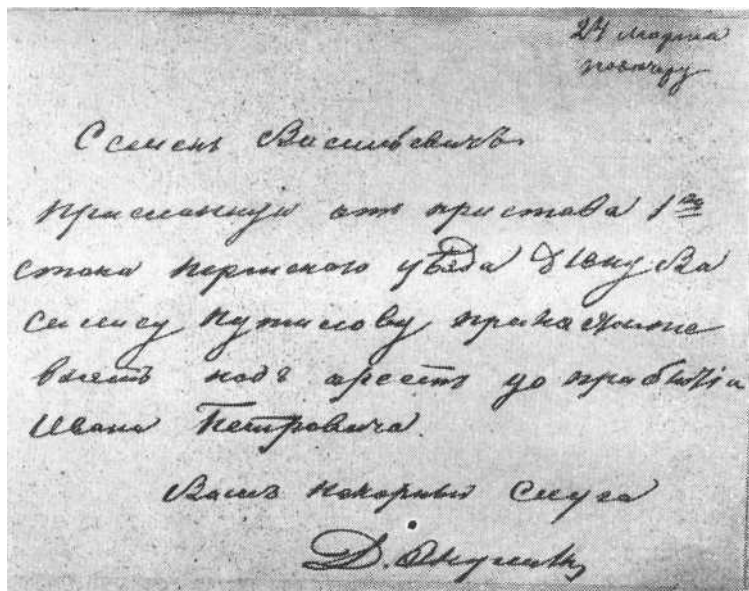 24 марта
повечеру
Семенъ Васильевичъ
Присланную отъ пристава 1го
стана Пермского уѣзда дѣвку Ва
силису Путилову прикажите
взять подъ арестъ до прибытія
Ивана Петровича.
Вашъ покорный Слуга
Д.